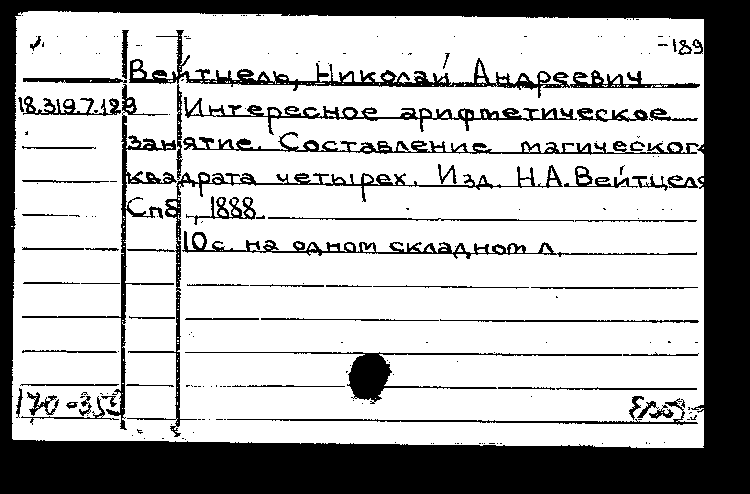 -189
Вейтцель, Николай Андреевич
18.319.7.129 Интересное арифметическое
занятие. Составление магического
квадрата четырех. Изд. Н.А.Вейтцеля
Спб, 1888.
10 с. на одном складном л.
170-359